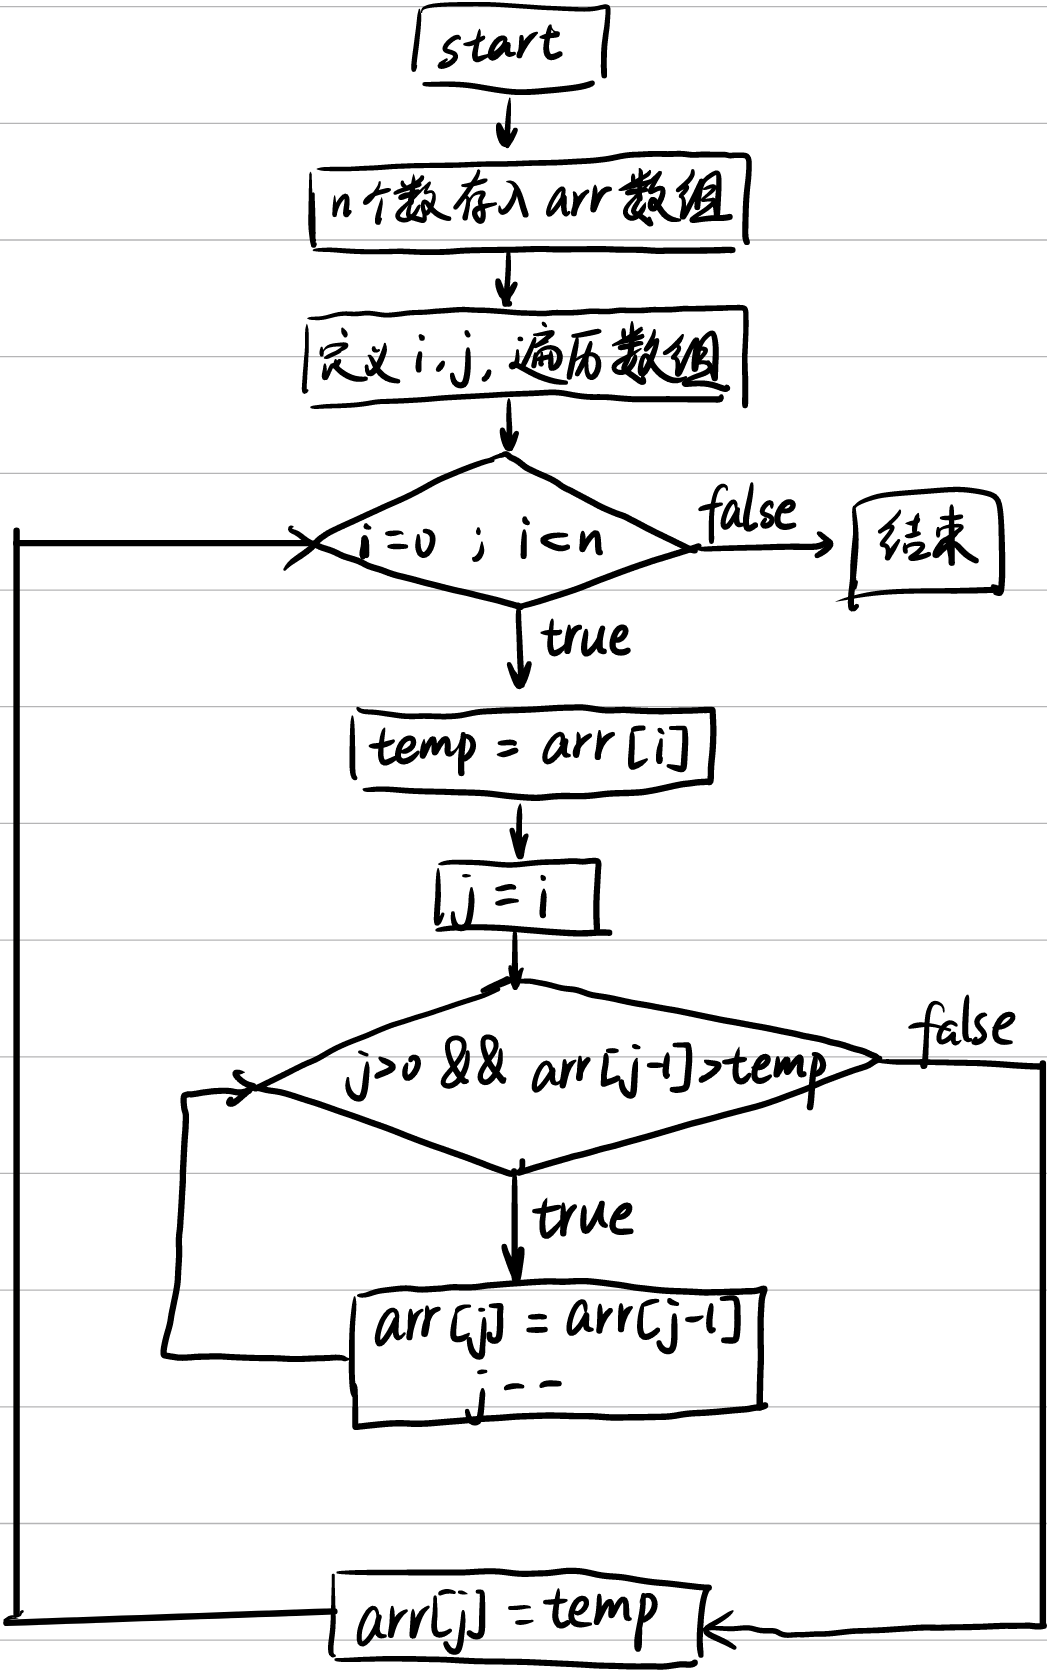 start
n个数存入arr数组
定义i,j,遍历数组
i=0 ; i<n
false
结束
true
temp = arr[i]
j = i
j>0 && arr[j-1]>temp
false
true
arr[j] = arr[j-1]
j--
arr[j] = temp